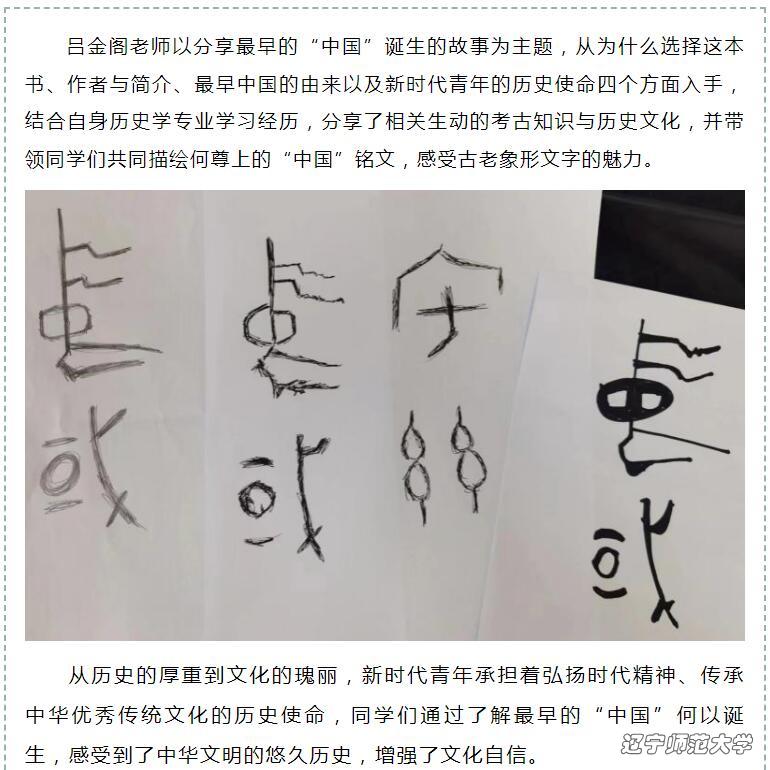 吕金阁老师以分享最早的“中国”诞生的故事为主题，从为什么选择这本
书、作者与简介、最早中国的由来以及新时代青年的历史使命四个方面入手，
结合自身历史学专业学习经历，分享了相关生动的考古知识与历史文化，并带
领同学们共同描绘何尊上的“中国”铭文，感受古老象形文字的魅力。
从历史的厚重到文化的瑰丽，新时代青年承担着弘扬时代精神、传承
中华优秀传统文化的历史使命，同学们通过了解最早的“中国”何以诞
生，感受到了中华文明的悠久历史，增强了文化自信。
辽宁师范大学